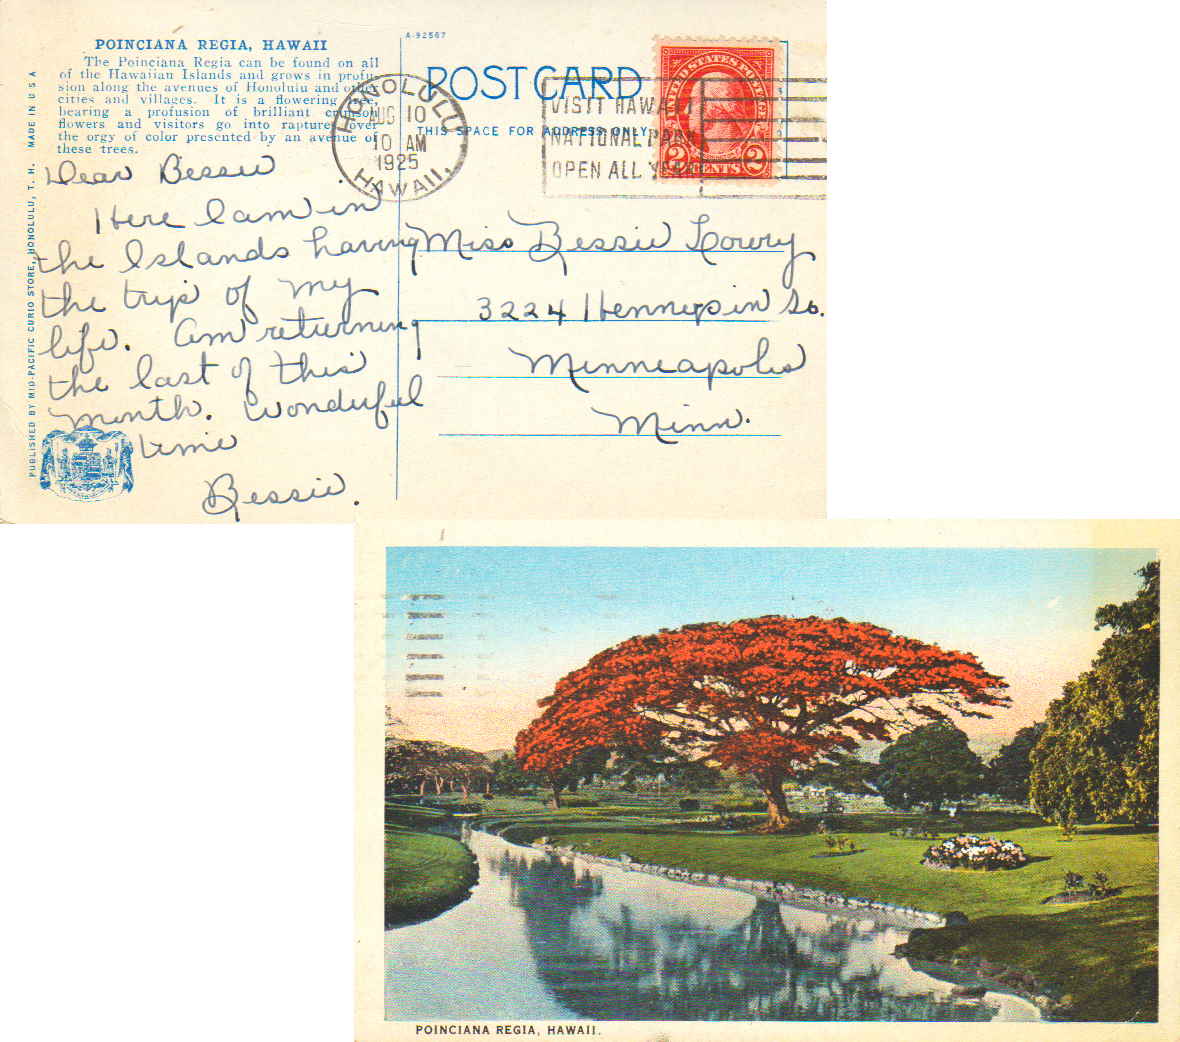 POINCIANA REGIA, HAWAII
The Poinciana Regia can be found on all
of the Hawaiian Islands and grows in profu-
sion along the avenues of Honolulu and other
cities and villages. It is a flowering tree,
bearing a profusion of brilliant crimson
flowers and visitors go into raptures over
the orgy of color presented by an avenue of
these trees.
A-92567
POST CARD
THIS SPACE FOR ADDRESS ONLY
HONOLULU
AUG 10
10 AM
1925
HAWAII.
VISIT HAWAII
NATIONAL PARK
OPEN ALL YEAR
UNITED STATES POSTAGE
2 CENTS 2
MADE IN U S A
PUBLISHED BY MID-PACIFIC CURIO STORE, HONOLULU, T. H.
Dear Bessie
Here I am in
the Islands having
the trip of my
life. Am returning
the last of this
month. Wonderful
time
Bessie.
Miss Bessie Lowry
3224 Hennepin So.
Minneapolis
Minn.
POINCIANA REGIA, HAWAII.